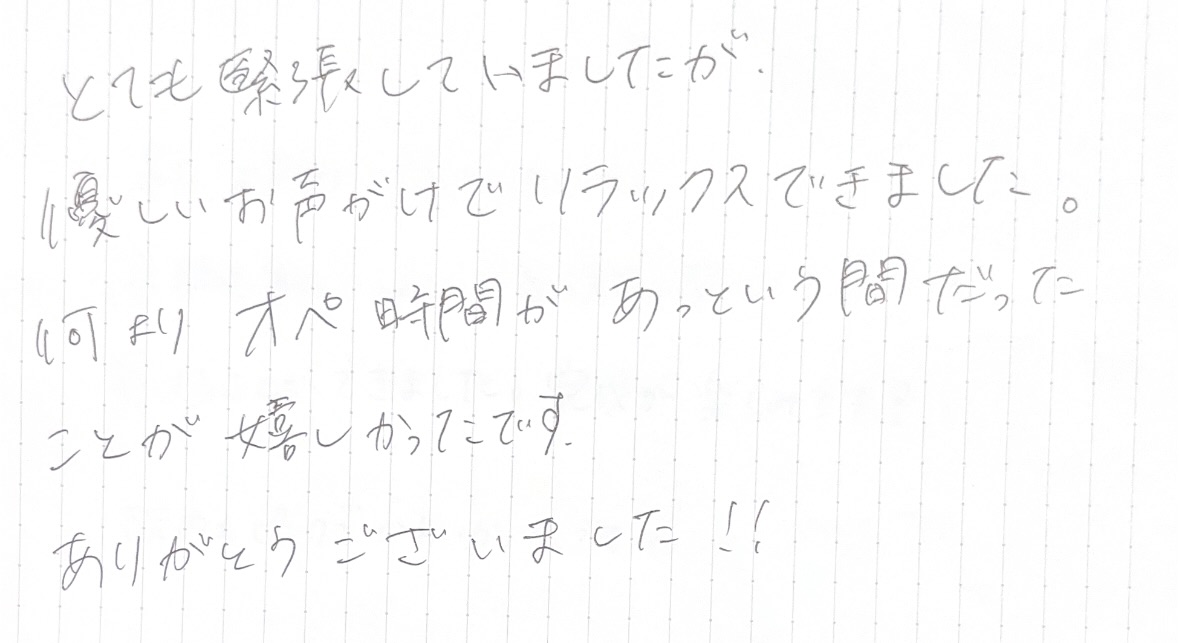 とても緊張していましたが.
優しいお声がけでリラックスできました。
何よりオペ時間があっという間だった
ことが嬉しかったです.
ありがとうございました!!